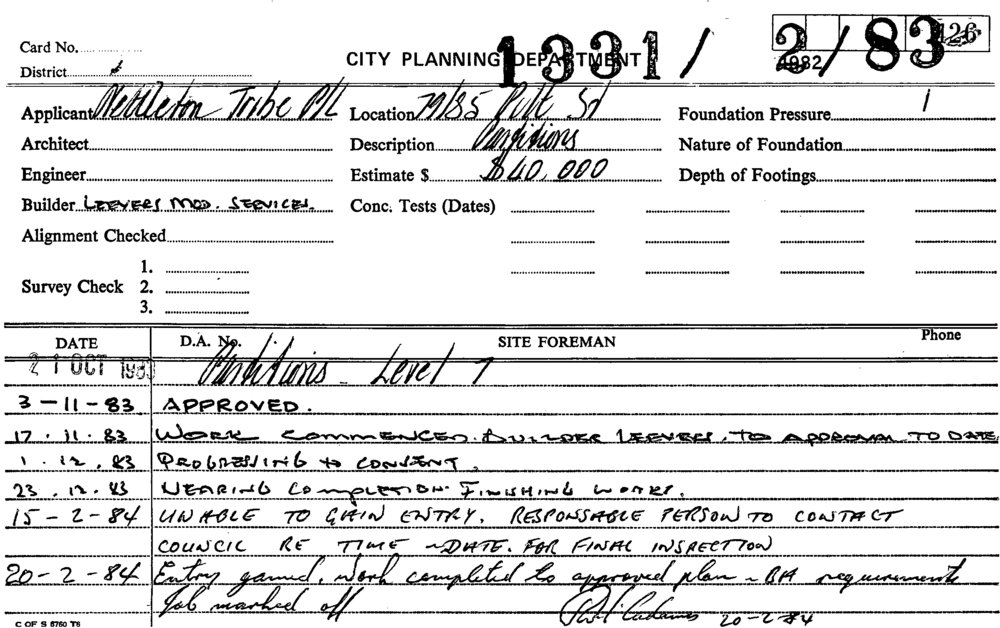 Card No.
District
CITY PLANNING DEPARTMENT
1331/2/83
Applicant Nettleton Tribe P/L Location 79/85 Pitt St Foundation Pressure
Architect Description Partitions Nature of Foundation
Engineer Estimate $ $40,000 Depth of Footings
Builder LEEVERS MOD. SERVICES. Conc. Tests (Dates)
Alignment Checked
1.
Survey Check 2.
3.
DATE D.A. No. SITE FOREMAN Phone
21 OCT 1983 Partitions - Level 7
3-11-83 APPROVED.
17.11.83 WORK COMMENCED. BUILDER LEEVERS. TO APPROVAL TO DATE
1.12.83 PROGRESSING TO CONSENT.
23.12.83 NEARING COMPLETION. FINISHING WORKS.
15-2-84 UNABLE TO GAIN ENTRY. RESPONSABLE PERSON TO CONTACT
COUNCIL RE TIME ~ DATE. FOR FINAL INSPECTION
20-2-84 Entry gained. Work completed to approved plan ~ BA requirements
Job marked off 20-2-84
C OF S 5760 T6